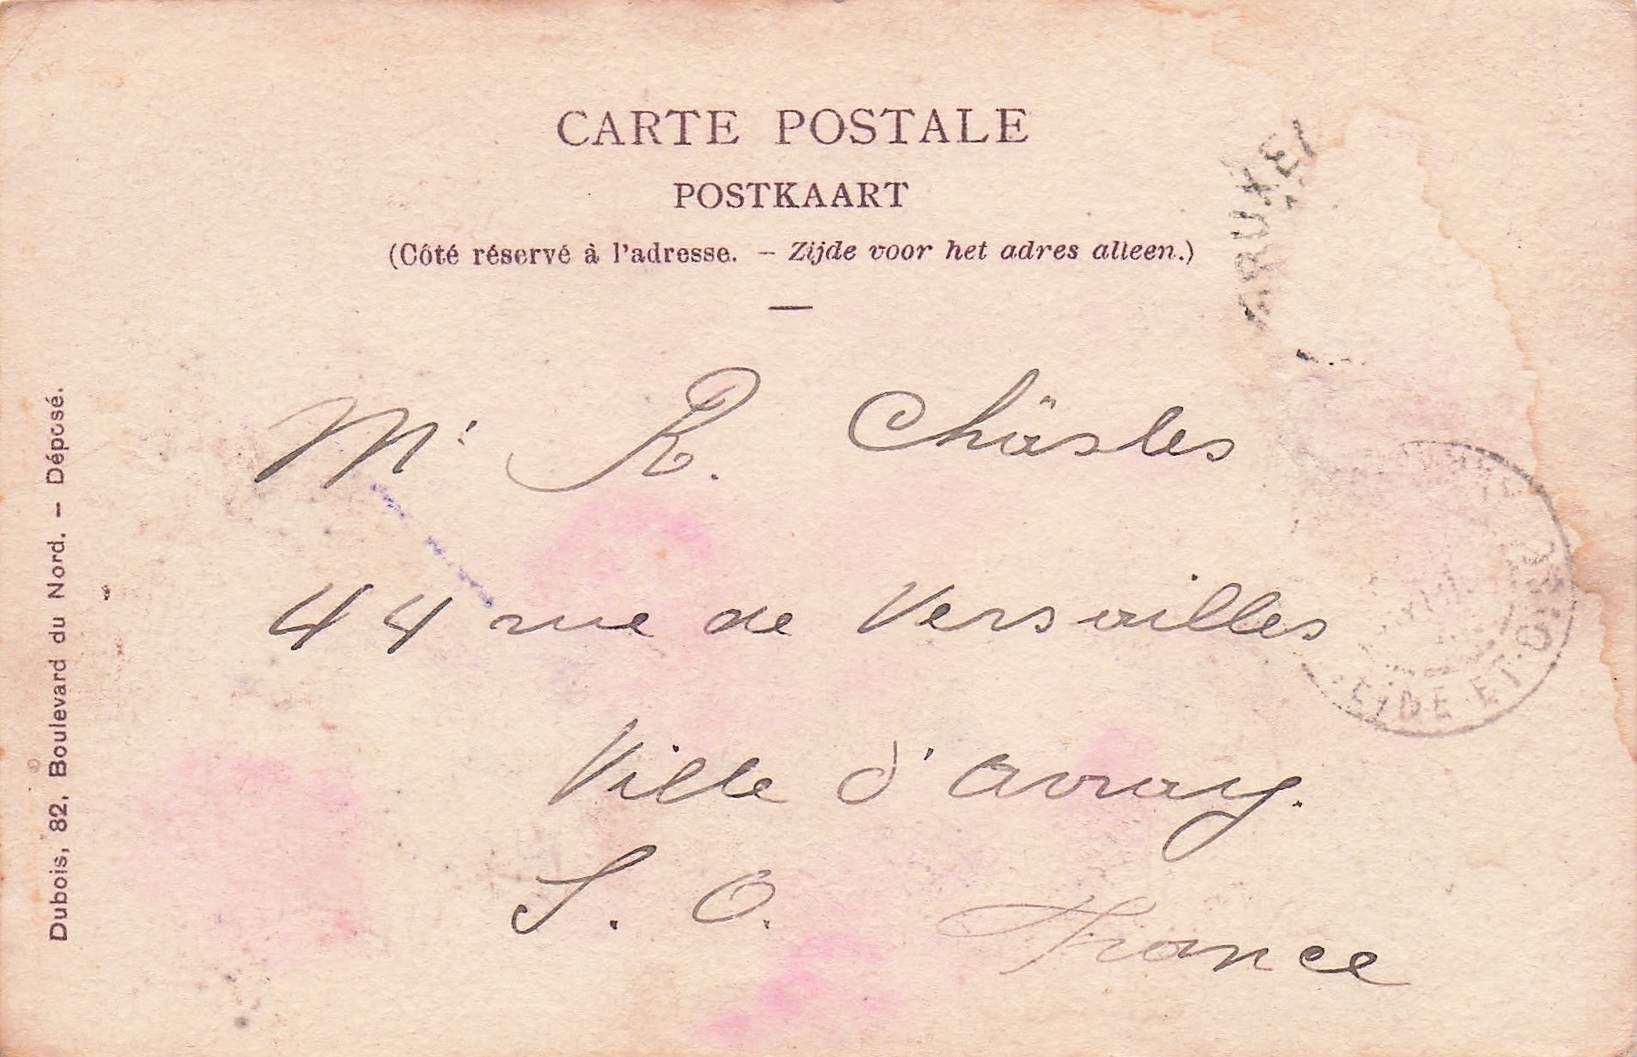 CARTE POSTALE
POSTKAART
(Côté réservé à l'adresse. – Zijde voor het adres alleen.)
Mr R. Châsles
44 rue de Versailles
Ville d'Avray.
S. O. France
Dubois, 82, Boulevard du Nord. – Déposé.
SEINE-ET-O